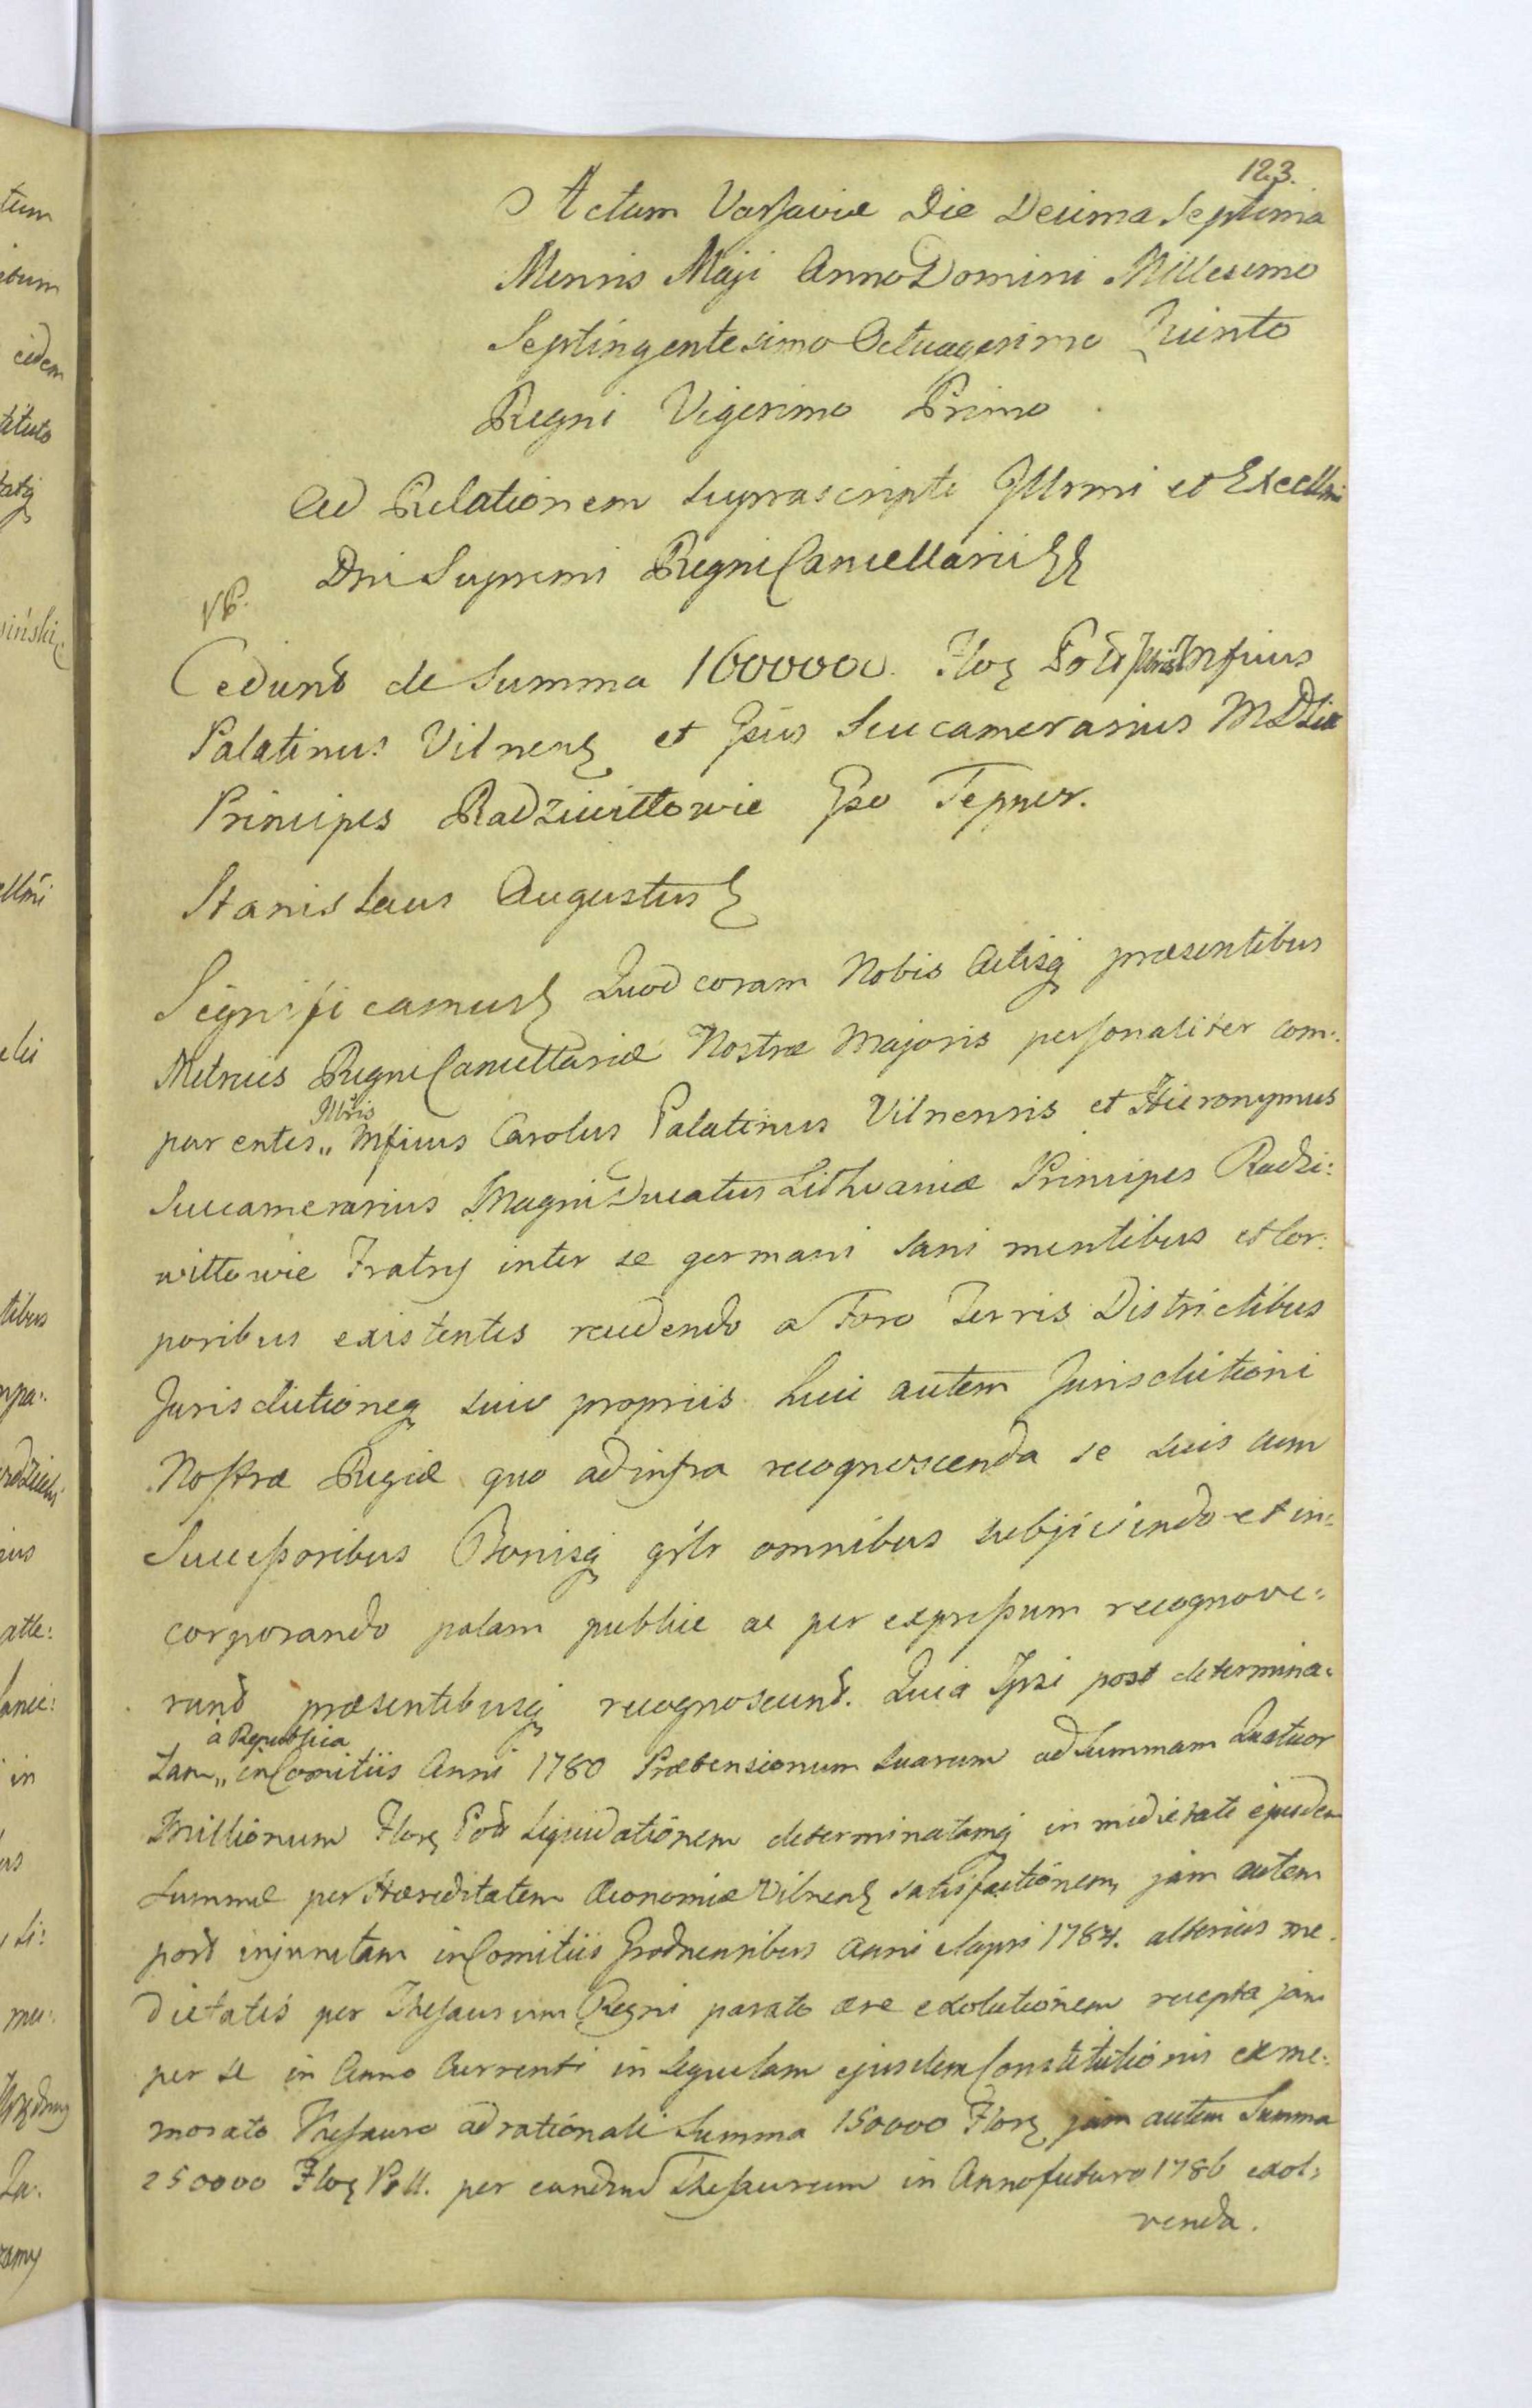 123.
Actum Varsaviæ Die Decima Septima
Mensis Maji Anno Domini Millesimo
Septingentesimo Octuagesimo Quinto
Regni Vigesimo Primo.
Ad Relationem suprascripti Illsmi et Excellmi
Dni Supremi Regni Cancellarii
Cedunt de Summa 1600000. Flor Pol Illris Mficus
Palatinus Vilnens et Gsus Succamerarius MDLiæ
Principes Radziwiłłowie Gso Tepper.
Stanislaus Augustus
Significamus Quod coram Nobis Actisq præsentibus
Metrices Regni Cancellariæ Nostræ Majoris personaliter com:
parentes „ Illris Mficus Carolus Palatinus Vilnensis et Hieronymus
Succamerarius Magni Ducatus Lithvaniæ Principes Radzi:
wiłłowie Fratres inter se germani sani mentibus et Cor:
poribus existentes recedendo a Foro Terris Districtibus
Jurisdictioneq suis propriis huic autem Jurisdictioni
Nostræ Regiæ quo ad infra recognoscenda se suis cum
Successoribus Bonisq gnlr omnibus subjiciendo et in:
corporando palam publice ac per expressum recognove:
runt præsentibusq recognoscunt. Quia Ipsi post determina:
tam „ à Republica in Comitiis Anni 1780 Prætensionum suarum ad Summam Quatuor
Millionum Flor Pol Liquidationem determinatamq in medietate ejusdem
Summæ per Hæreditatem Œconomiæ Vilnens satisfactionem, jam autem
post injunctam in Comitiis Grodnensibus Anni elapsi 1784. alterius me:
dietatis per Thesaurum Regni parato ære exolutionem recepta jam
per se in Anno Currenti in Sequelam ejusdem Constitutionis ex me:
morato Thesauro ad rationali Summa 150000 Flor jam autem Summa
250000 Flor Poll. per eundem Thesaurum in Anno futuro 1786 exol:
venda.